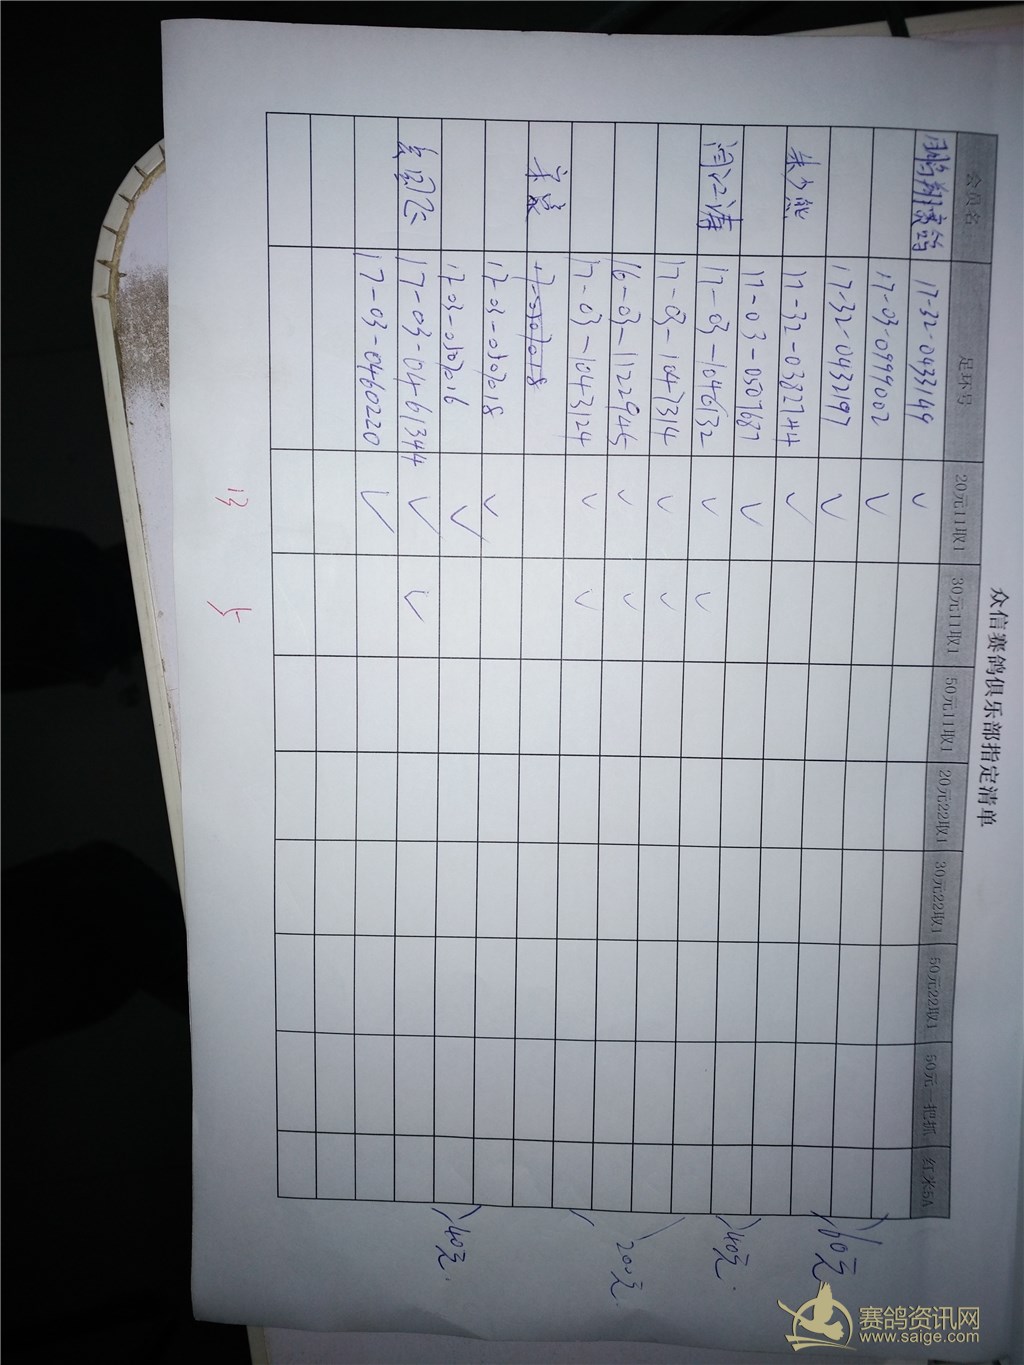 众信赛鸽俱乐部指定清单
会员名 足环号 20元11取1 30元11取1 50元11取1 20元22取1 30元22取1 50元22取1 50元一把抓 红米5A
鹏翔赛鸽 17-32-0433149 ✓
17-03-0999002 ✓
17-32-0433197 ✓
朱少熊 17-32-0382744 ✓
17-03-0507687 ✓
闫江涛 17-03-1046132 ✓ ✓
17-03-1047314 ✓ ✓
16-03-1122945 ✓ ✓
17-03-1043124 ✓ ✓
17-03-0707018
17-03-0707018 ✓
17-03-0707016 ✓
17-03-0461344 ✓ ✓
17-03-0460220 ✓
60元
40元
200元
40元
13
5
赛鸽资讯网
www.saige.com